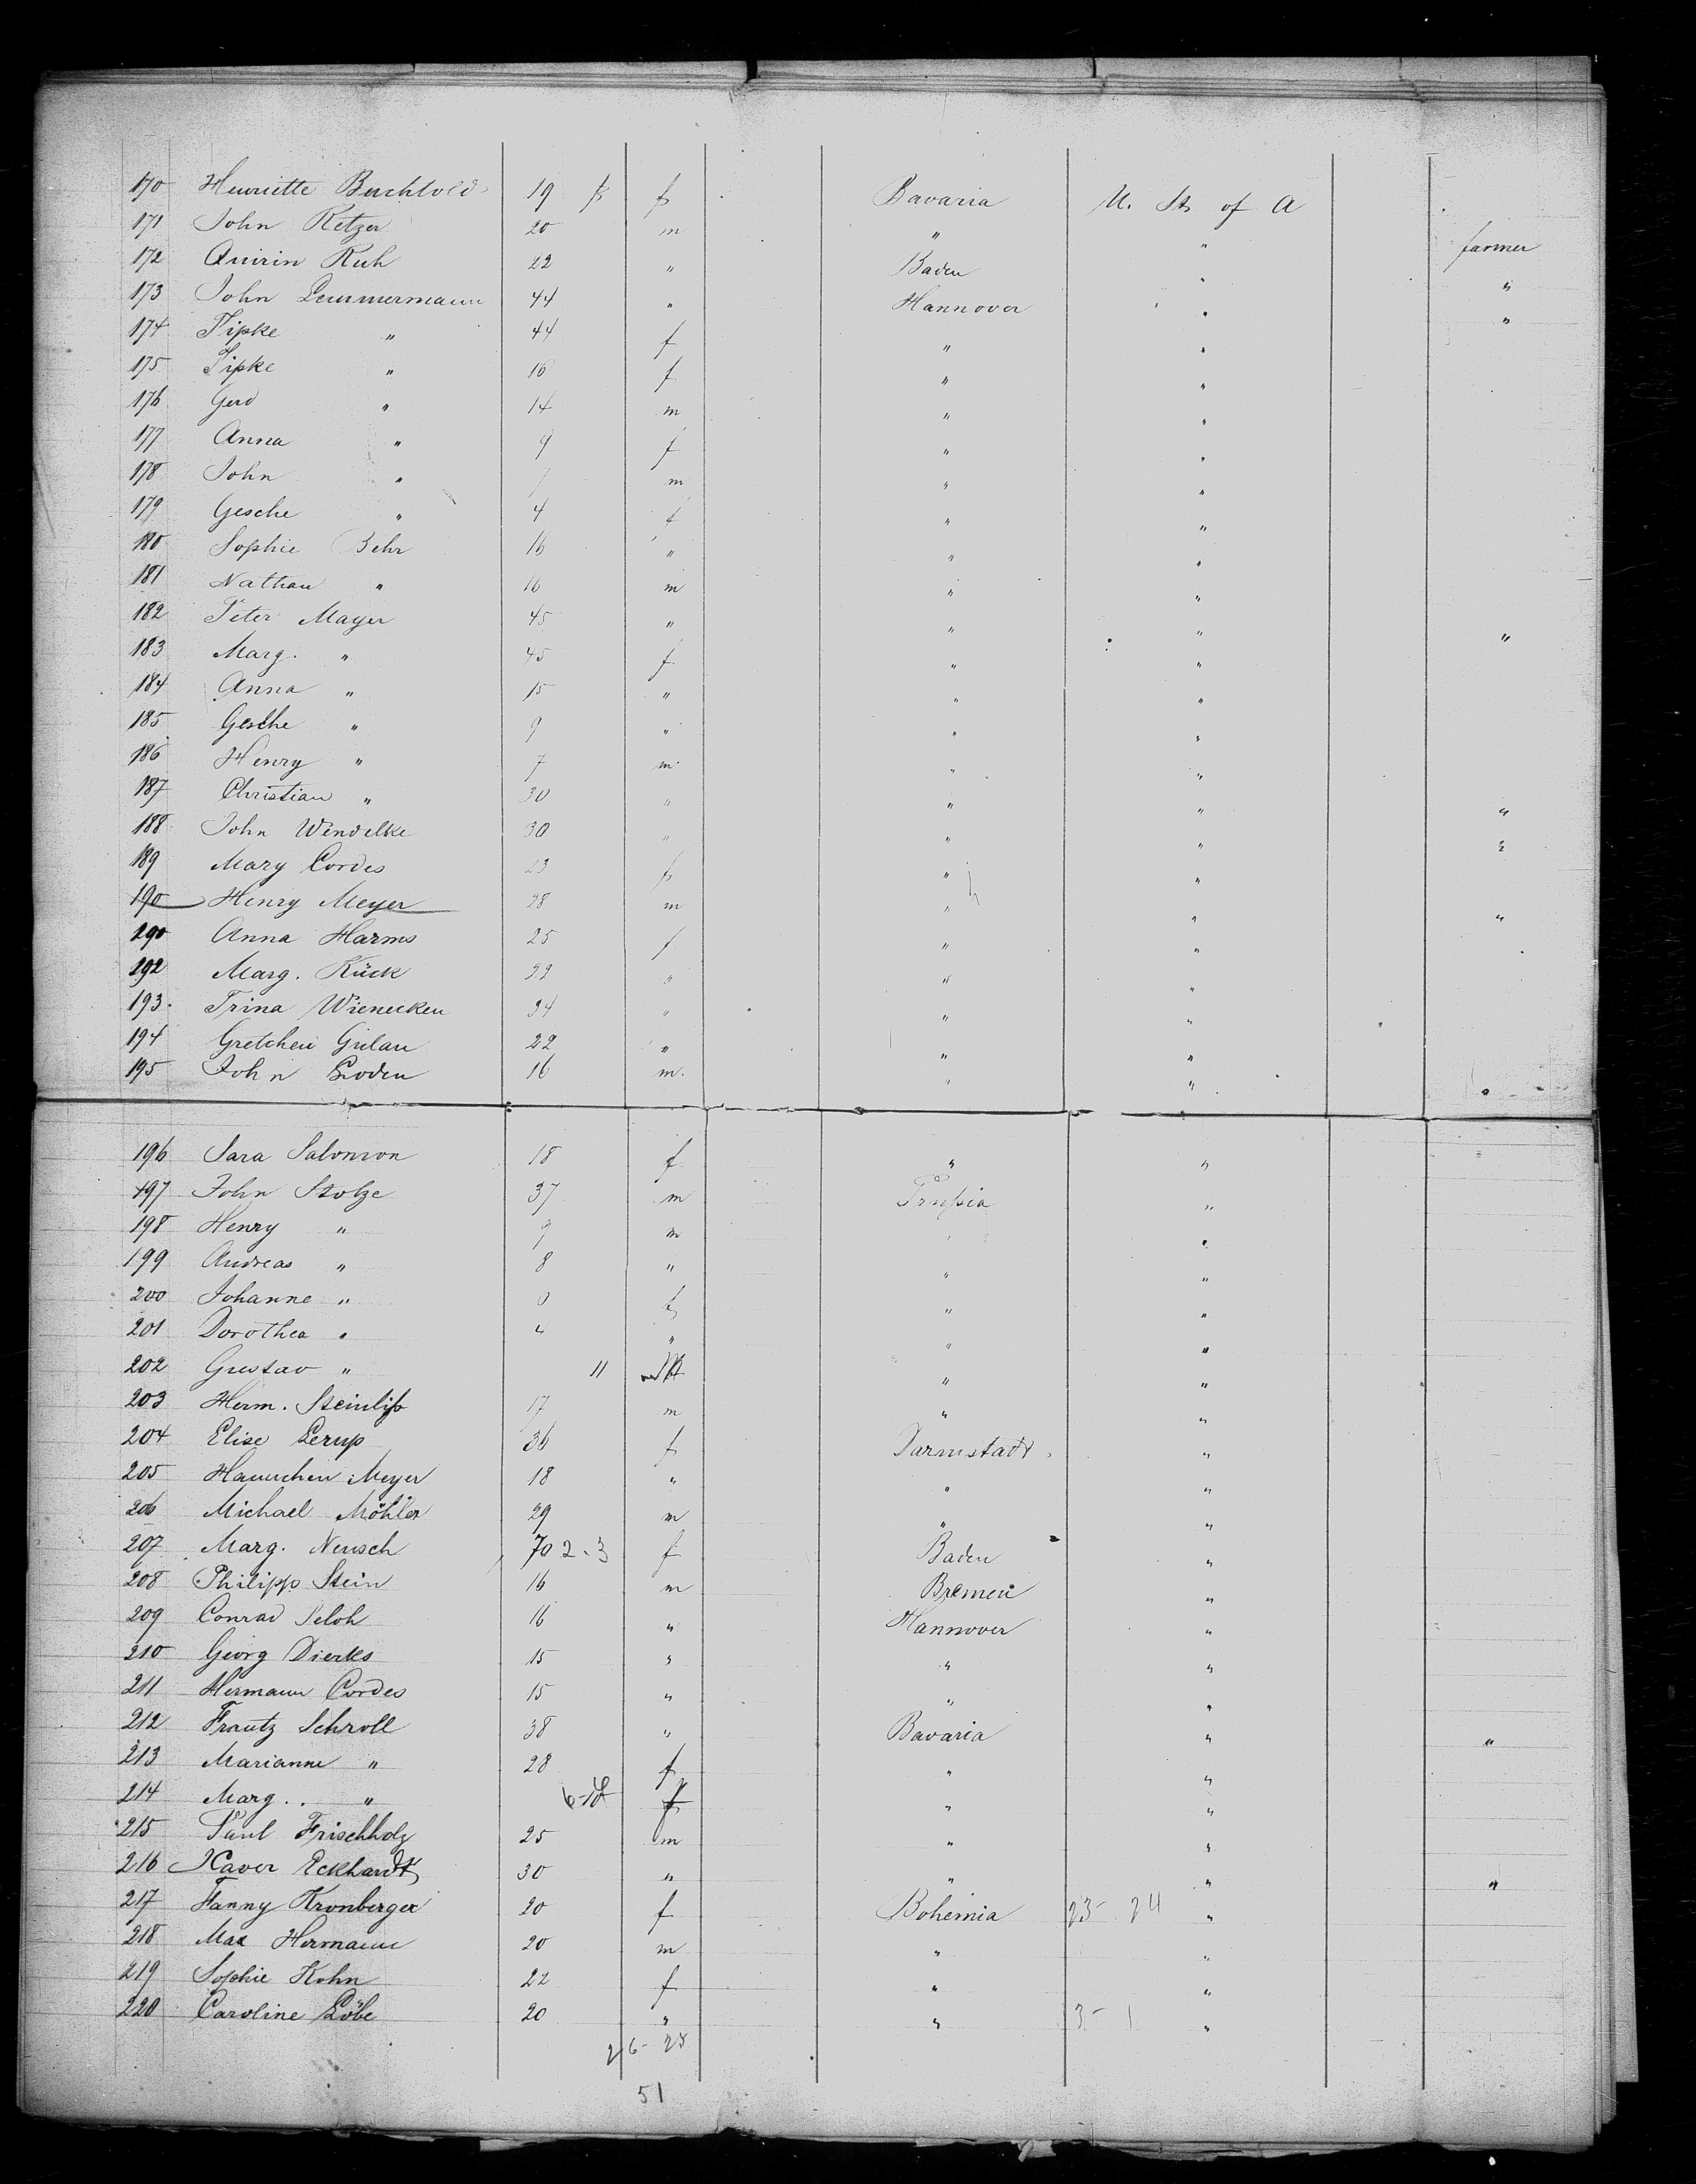 170 Henriette Buchtold 19 f Bavaria U. St. of A
171 John Retzer 20 m " " farmer
172 Quirin Ruh 22 " Baden " "
173 John Lemmermann 44 " Hannover " "
174 Tipke " 44 f " "
175 Tipke " 16 f " "
176 Gerd " 14 m " "
177 Anna " 9 f " "
178 John " 7 m " "
179 Gesche " 4 f " "
180 Sophie Behr 16 " " "
181 Nathan " 16 m " "
182 Peter Mayer 45 " " " "
183 Marg. " 45 f " "
184 Anna " 15 " " "
185 Gesche " 9 " " "
186 Henry " 7 m " "
187 Christian " 30 " " " "
188 John Wendelke 30 " " " "
189 Mary Cordes 23 f " "
190 Henry Meyer 28 m " " "
290 Anna Harms 25 f " "
192 Marg. Kück 22 " " "
193 Trina Wienecken 24 " " "
194 Gretchen Gielau 22 " " "
195 John Boden 16 m. " " "
196 Sara Salomon 18 f " "
197 John Stolze 37 m Prußia "
198 Henry " 9 m " "
199 Andreas " 8 " " "
200 Johanne " 6 f " "
201 Dorothea " 4 " " "
202 Gustav " 11 " "
203 Herm. 17 m " "
204 Elise Lerup 36 f Darmstadt "
205 Hannchen Meyer 18 " " "
206 Michael Möhler 29 m " "
207 Marg. Neusch 70 2-3 f Baden "
208 Philipp Stein 16 m Bremen "
209 Conrad Seloh 16 " Hannover "
210 Georg Dierks 15 " " "
211 Hermann Cordes 15 " " "
212 Frantz Schroll 38 " Bavaria " "
213 Marianne " 28 f " "
214 Marg. " f " "
215 Paul Frischholz 25 m " "
216 Xaver Eckhardt 30 " " " "
217 Fanny Kronberger 20 f Bohemia 23-24 "
218 Max Hermann 20 m " "
219 Sophie Kohn 22 f " "
220 Caroline Löbe 20 " " 3-1 "
26-25
51